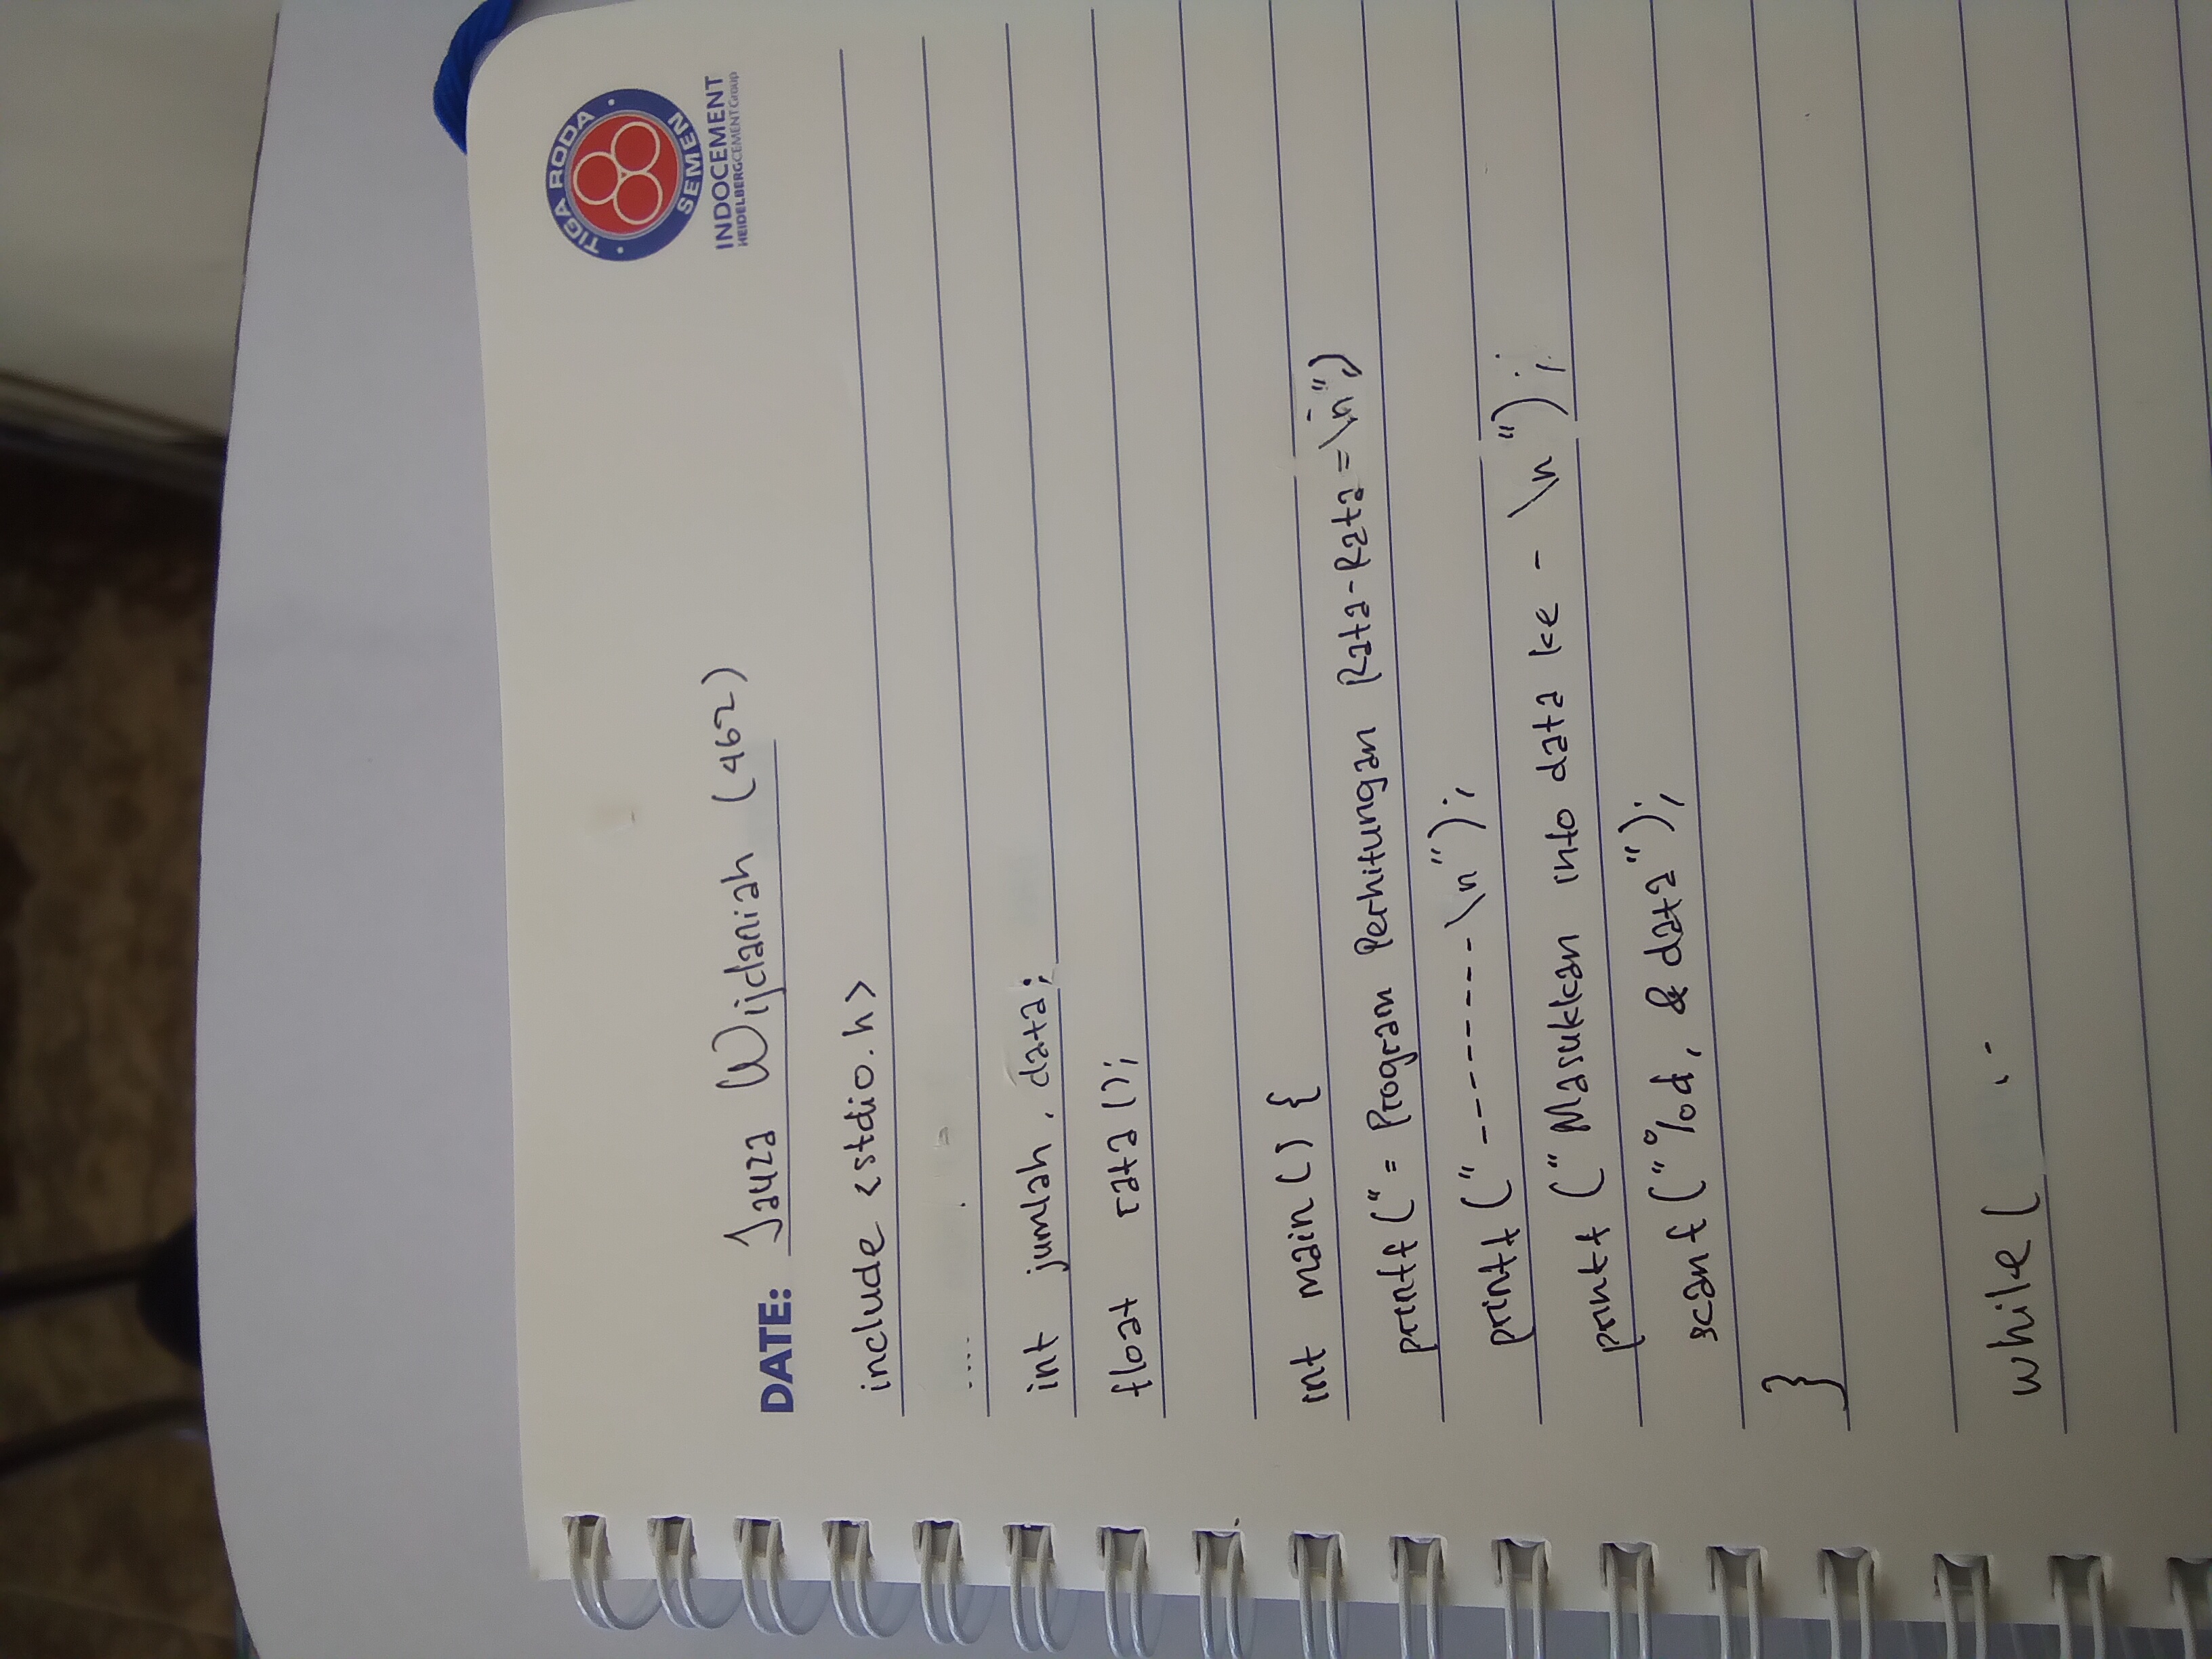 TIGA RODA
SEMEN
INDOCEMENT
HEIDELBERGCEMENT Group
DATE: Jauza Wijdaniah (462)
include <stdio.h>
int jumlah, data;
float rata();
int main() {
printf("= Program Perhitungan Rata-Rata =\n")
printf("--------\n");
printf("Masukkan info data ke - \n");
scanf("%d, &data");
}
while (